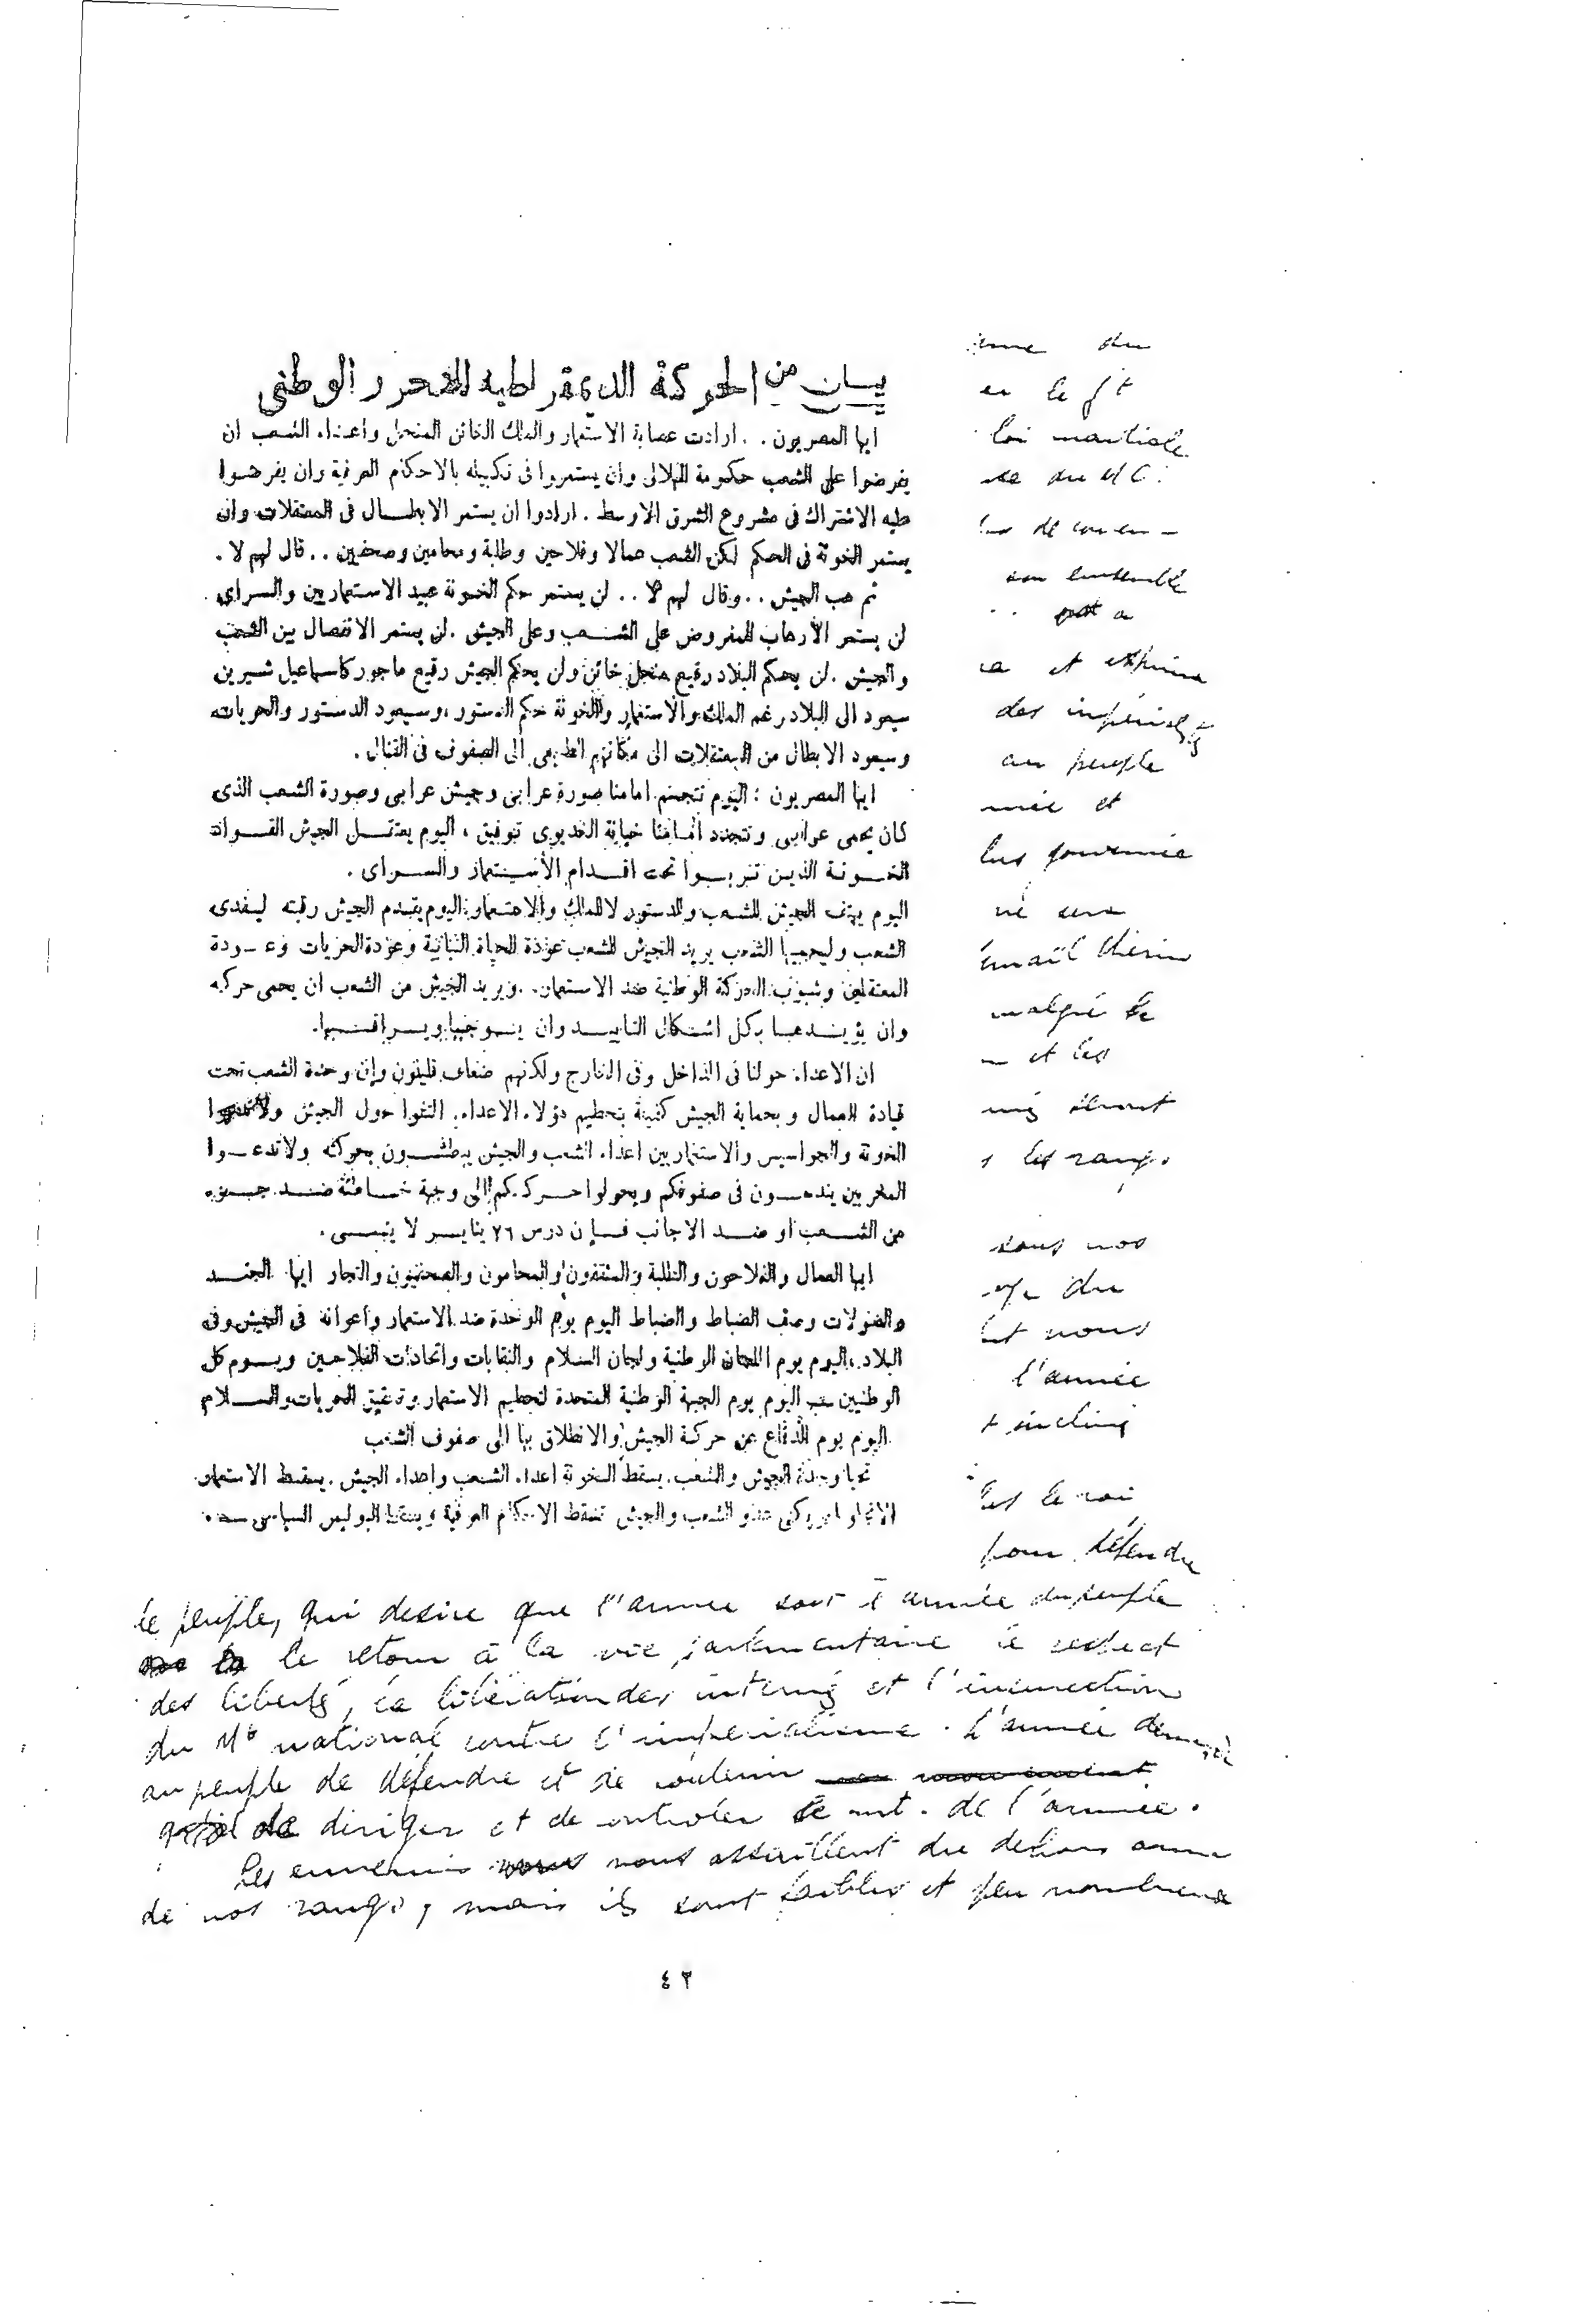 بيان من الحركة الديمقراطية للتحرر الوطنى
ايها المصريون . . ارادت عصابة الاستعمار والملك الخائن المنحل واعداء الشعب ان
يفرضوا على الشعب حكومة الهلالى وان يستمروا فى تكبيله بالاحكام العرفية وان يفرضوا
عليه الاشتراك فى مشروع الشرق الاوسط . ارادوا ان يستمر الابطـال فى المعتقلات وان
يستمر الخونة فى الحكم لكن الشعب عمالا وفلاحين وطلبة ومحامين وصحفيين . . قال لهم لا .
ثم هب الجيش . . وقال لهم لا . . لن يستمر حكم الخونة عبيد الاستعماريين والسراى .
لن يستمر الأرهاب المفروض على الشعب وعلى الجيش . لن يستمر الانفصال بين الشعب
والجيش . لن يحكم البلاد رقيع منحل خائن ولن يحكم الجيش رقيع ماجور كاسماعيل شيرين
سيعود الى البلاد رغم الملك والاستعمار والخونة حكم الدستور ، وسيعود الدستور والحريات
وسيعود الابطال من المعتقلات الى مكانهم الطبيعى الى الصفوف فى القنال .
ايها المصريون : اليوم تتجسم امامنا صورة عرابى وجيش عرابى وصورة الشعب الذى
كان يحمى عرابى وتتجدد امامنا خيانة الخديوى توفيق ، اليوم يعتقـل الجيش القـواد
الخـونة الذين تربـوا تحت اقـدام الأسـتعمار والسـراى .
اليوم يهتف الجيش للشعب والدستور لا للملك والاستعمار اليوم يقدم الجيش رقبته ليفدى
الشعب وليحييها الشعب يريد الجيش للشعب عودة الحياة النيابية وعودة الحريات وعـودة
المعتقلين وشبوب المعركة الوطنية ضد الاستعمار . ويريد الجيش من الشعب ان يحمى حركته
وان يؤيـدها بكل اشكال التاييـد وان يـوجهها ويـراقبـها .
ان الاعداء حولنا فى الداخل وفى الخارج ولكنهم ضعاف قليلون وإن وحدة الشعب تحت
قيادة العمال وبحماية الجيش كفيلة بتحطيم هؤلاء الاعداء . التفوا حول الجيش
الخونة والجواسيس والاستعماريين اعداء الشعب والجيش يبطشـون بحركته ولا تدعـوا
المخربين يندسـون فى صفوفكم ويحولوا حـركتكم الى وجهة خـاطئة ضـد جـزء
من الشـعب او ضـد الاجانب فـإن درس ٢٦ ينايـر لا ينسـى .
ايها العمال والفلاحون والطلبة والمثقفون والمحامون والصحفيون والتجار ايها الجنـد
والصولات وصف الضباط والضباط اليوم يوم الوحدة ضد الاستعمار واعوانه فى الجيش وفى
البلاد ، اليوم يوم اللجان الوطنية ولجان السلام والنقابات واتحادات الفلاحين ويـوم كل
الوطنيين اليوم يوم الجبهة الوطنية المتحدة لتحطيم الاستعمار وتحقيق الحريات والسـلام
اليوم يوم الدفاع عن حركة الجيش والانطلاق بها الى صفوف الشعب
تحيا وحدة الجيش والشعب . يسقط الخونة اعداء الشعب واعداء الجيش . يسقط الاستعمار
الانجلو امريكى عدو الشعب والجيش تسقط الاحكام العرفية ويسقط البوليس السياسى
du
le gt
loi martiale
du M C.
son ensemble
a
et
des
au peuple
et
ne sera
malgré le
et les
les rangs.
sous nos
du
nous
l'armée
le roi
pour défendre
le peuple, qui desire que l'armee soit l'armée du peuple
le retour à la vie parlementaire le respect
des libertés, la libération des internés et l'insurrection
du Mt national contre l'imperialisme . L'armée demande
au peuple de défendre et de soutenir
de diriger et de controler le mt. de l'armée.
Les ennemis nous assaillent du dehors
de nos rangs, mais ils sont faibles et peu nombreux
٤٢